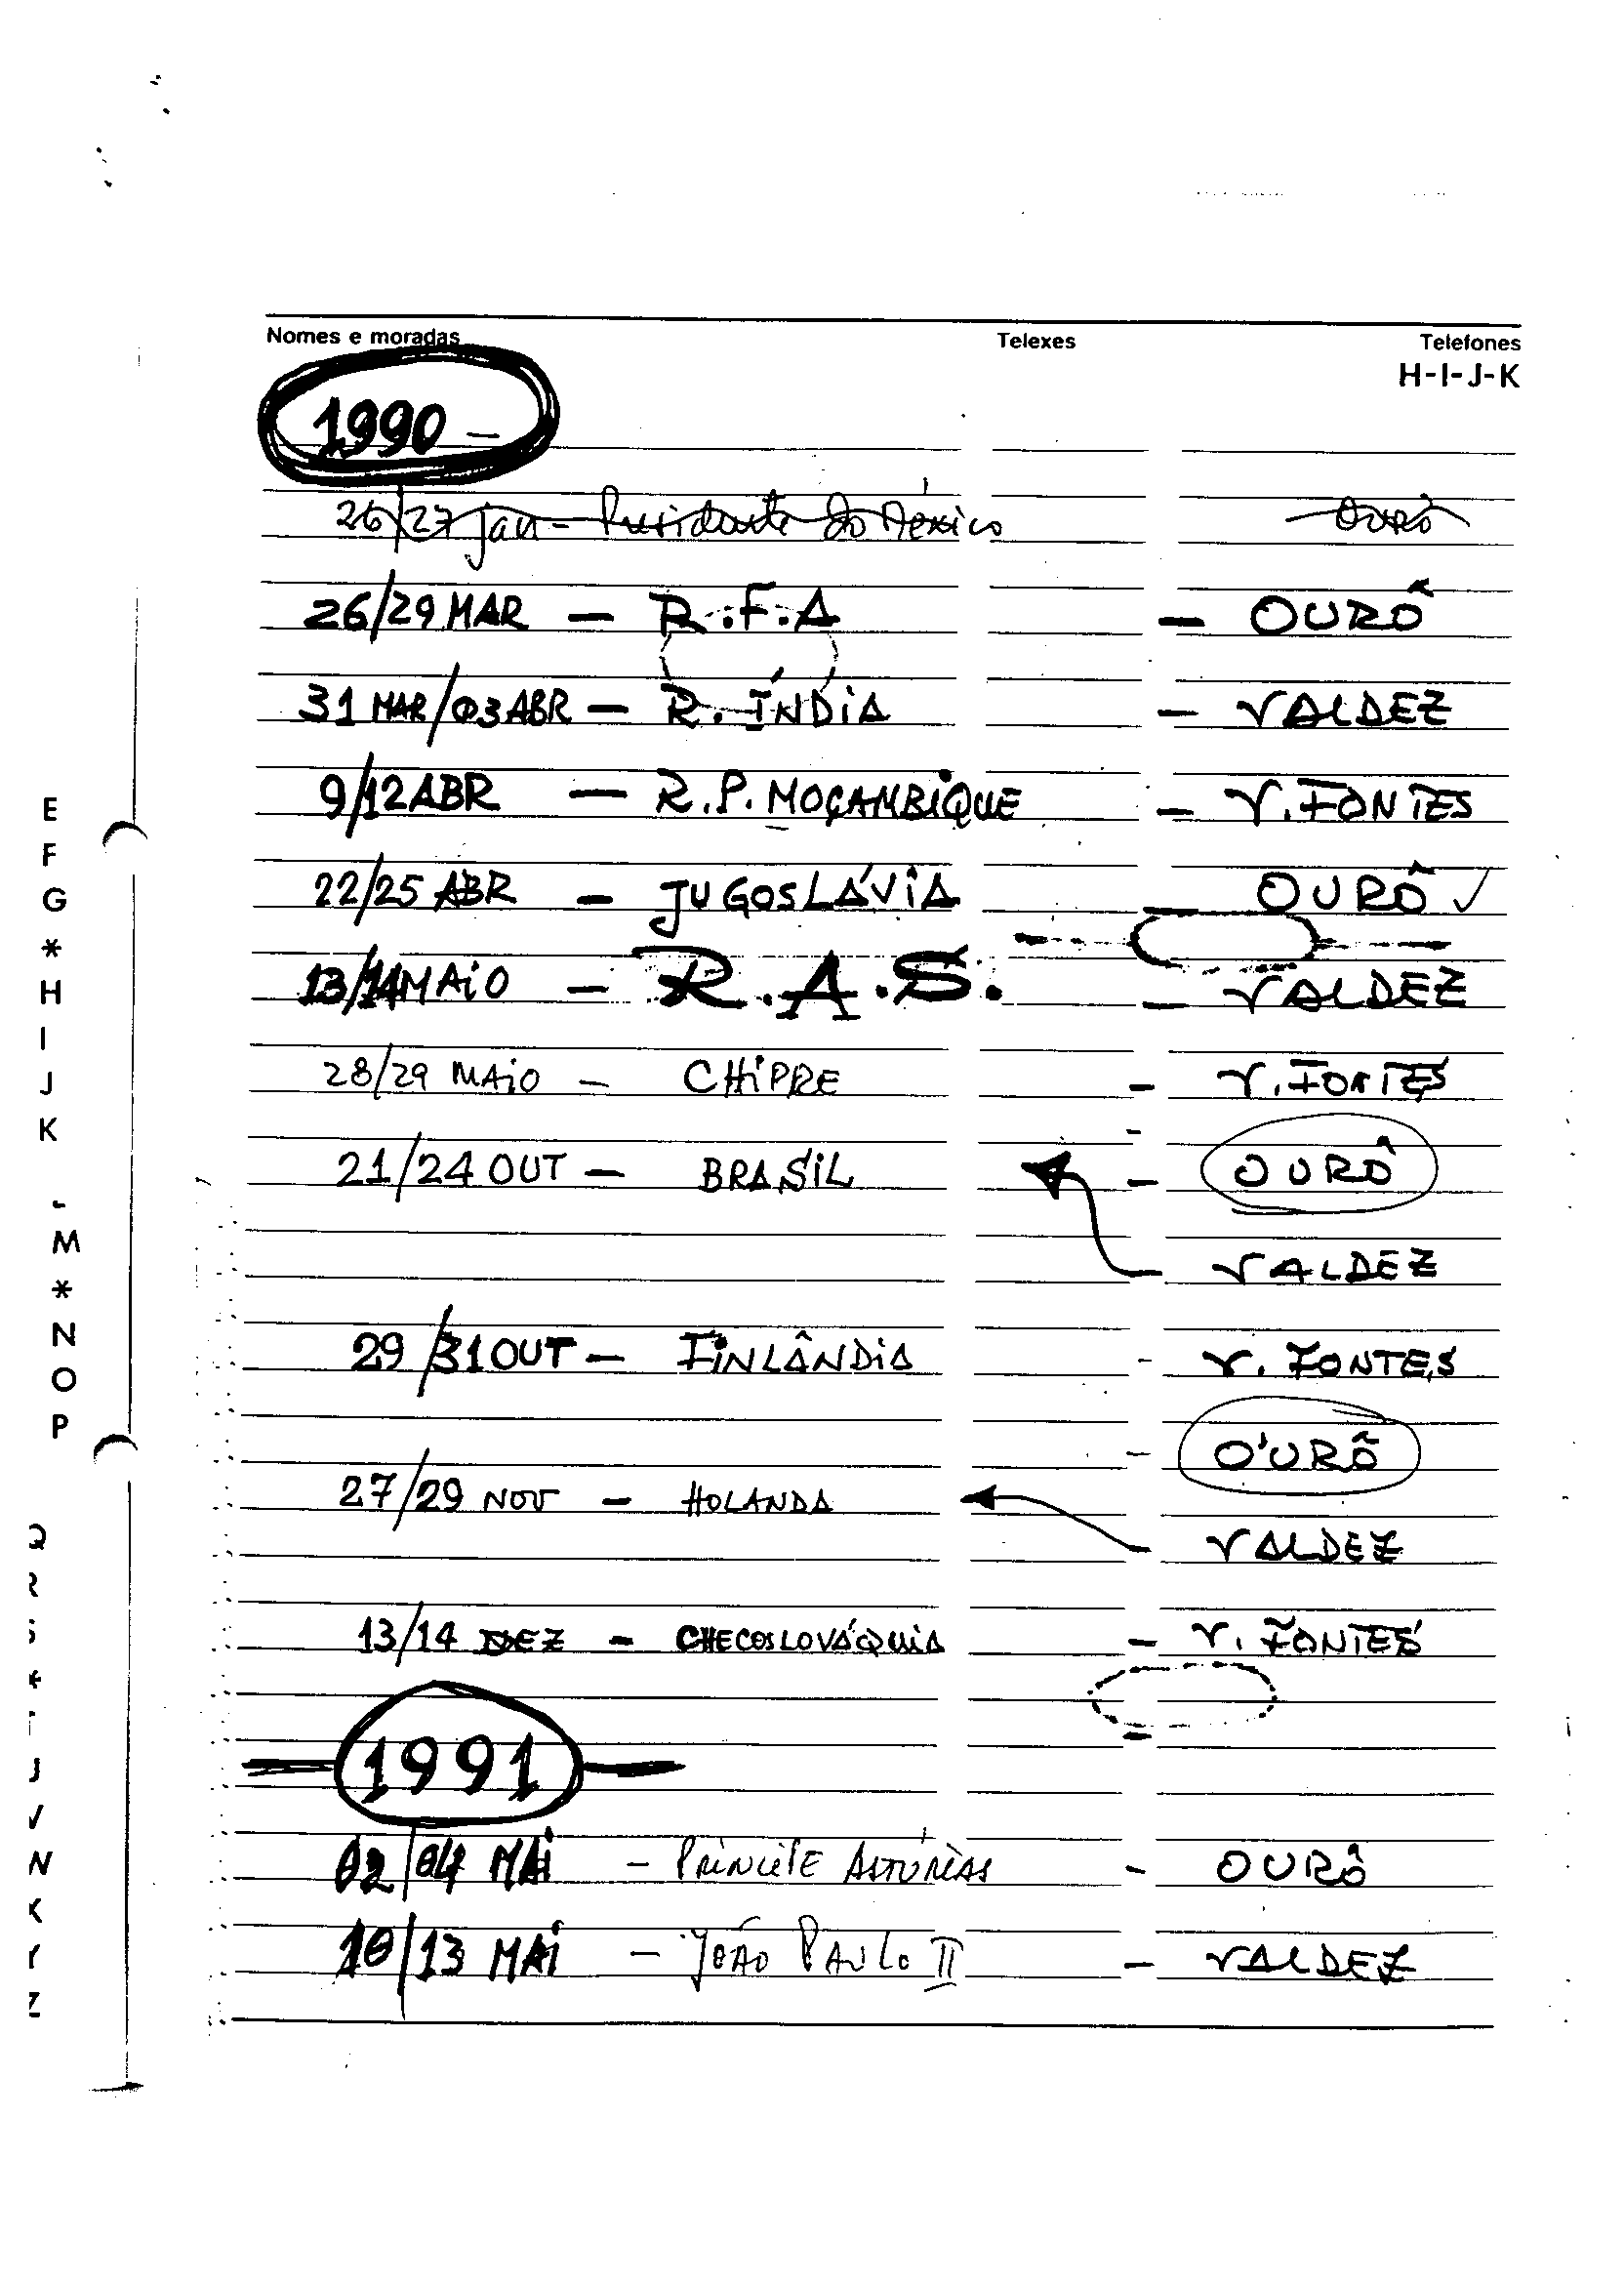 Nomes e moradas Telexes Telefones
H-I-J-K
1990 -
26/27 jan - Presidente do México OURÔ
26/29 MAR - R.F.A - OURÔ
31 MAR/03 ABR - R. ÍNDIA - VALDEZ
9/12 ABR - R.P. MOÇAMBIQUE - V. FONTES
22/25 ABR - JUGOSLÁVIA - OURÔ ✓
13/14 MAIO - R.A.S. - VALDEZ
28/29 MAIO - CHIPRE - V. FONTES
21/24 OUT - BRASIL - OURÔ
VALDEZ
29/31 OUT - FINLÂNDIA - V. FONTES
- O'URÔ
27/29 NOV - HOLANDA
VALDEZ
13/14 DEZ - CHECOSLOVÁQUIA - V. FONTES
1991
02/04 MAI - PRINCIPE ASTÚRIAS - OURÔ
10/13 MAI - JOÃO PAULO II - VALDEZ
E
F
G
*
H
I
J
K
M
*
N
O
P
Q
R
S
*
T
U
V
W
X
Y
Z